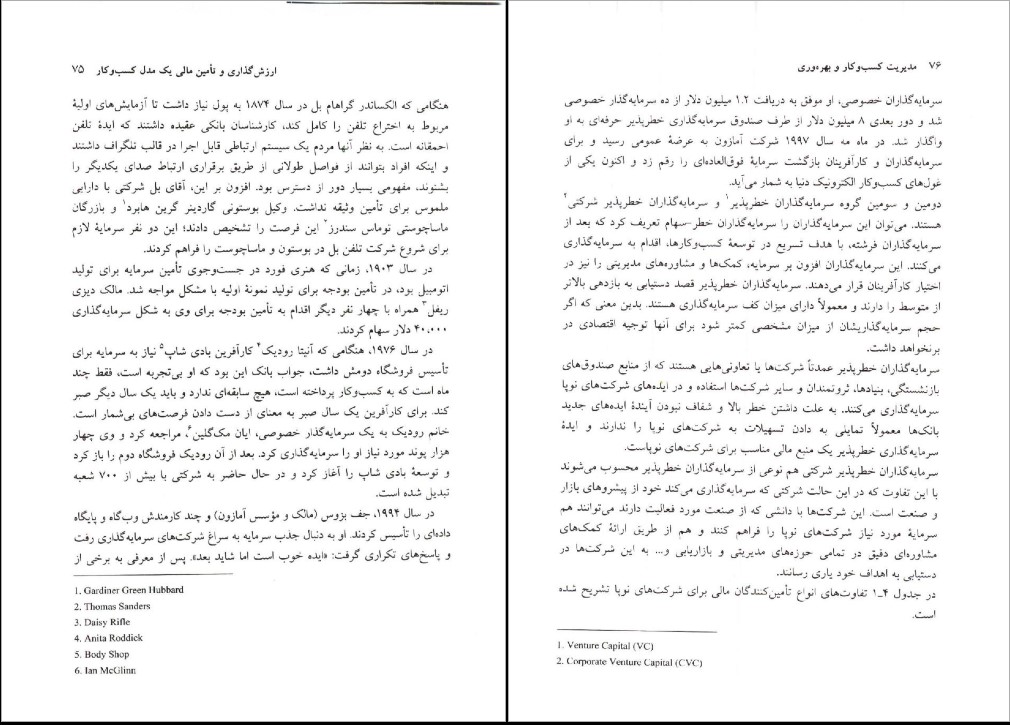 ارزش‌گذاری و تأمین مالی یک مدل کسب‌وکار ۷۵
هنگامی که الکساندر گراهام بل در سال ۱۸۷۴ به پول نیاز داشت تا آزمایش‌های اولیهٔ
مربوط به اختراع تلفن را کامل کند، کارشناسان بانکی عقیده داشتند که ایدهٔ تلفن
احمقانه است. به نظر آنها مردم یک سیستم ارتباطی قابل اجرا در قالب تلگراف داشتند
و اینکه افراد بتوانند از فواصل طولانی از طریق برقراری ارتباط صدای یکدیگر را
بشنوند، مفهومی بسیار دور از دسترس بود. افزون بر این، آقای بل شرکتی با دارایی
ملموس برای تأمین وثیقه نداشت. وکیل بوستونی گاردینر گرین هابرد۱ و بازرگان
ماساچوستی توماس سندرز۲ این فرصت را تشخیص دادند؛ این دو نفر سرمایهٔ لازم
برای شروع شرکت تلفن بل در بوستون و ماساچوست را فراهم کردند.
در سال ۱۹۰۳، زمانی که هنری فورد در جست‌وجوی تأمین سرمایه برای تولید
اتومبیل بود، در تأمین بودجه برای تولید نمونهٔ اولیه با مشکل مواجه شد. مالک دیزی
ریفل۳ همراه با چهار نفر دیگر اقدام به تأمین بودجه برای وی به شکل سرمایه‌گذاری
۴۰,۰۰۰ دلار سهام کردند.
در سال ۱۹۷۶، هنگامی که آنیتا رودیک۴ کارآفرین بادی شاپ۵ نیاز به سرمایه برای
تأسیس فروشگاه دومش داشت، جواب بانک این بود که او بی‌تجربه است، فقط چند
ماه است که به کسب‌وکار پرداخته است، هیچ سابقه‌ای ندارد و باید یک سال دیگر صبر
کند. برای کارآفرین یک سال صبر به معنای از دست دادن فرصت‌های بی‌شمار است.
خانم رودیک به یک سرمایه‌گذار خصوصی، ایان مک‌گلین۶، مراجعه کرد و وی چهار
هزار پوند مورد نیاز او را سرمایه‌گذاری کرد. بعد از آن رودیک فروشگاه دوم را باز کرد
و توسعهٔ بادی شاپ را آغاز کرد و در حال حاضر به شرکتی با بیش از ۷۰۰ شعبه
تبدیل شده است.
در سال ۱۹۹۴، جف بزوس (مالک و مؤسس آمازون) و چند کارمندش وب‌گاه و پایگاه
داده‌ای را تأسیس کردند. او به دنبال جذب سرمایه به سراغ شرکت‌های سرمایه‌گذاری رفت
و پاسخ‌های تکراری گرفت: «ایده خوب است اما شاید بعد». پس از معرفی به برخی از
1. Gardiner Green Hubbard
2. Thomas Sanders
3. Daisy Rifle
4. Anita Roddick
5. Body Shop
6. Ian McGlinn
۷۶ مدیریت کسب‌وکار و بهره‌وری
سرمایه‌گذاران خصوصی، او موفق به دریافت ۱.۲ میلیون دلار از ده سرمایه‌گذار خصوصی
شد و دور بعدی ۸ میلیون دلار از طرف صندوق سرمایه‌گذاری خطرپذیر حرفه‌ای به او
واگذار شد. در ماه مه سال ۱۹۹۷ شرکت آمازون به عرضهٔ عمومی رسید و برای
سرمایه‌گذاران و کارآفرینان بازگشت سرمایهٔ فوق‌العاده‌ای را رقم زد و اکنون یکی از
غول‌های کسب‌وکار الکترونیک دنیا به شمار می‌آید.
دومین و سومین گروه سرمایه‌گذاران خطرپذیر۱ و سرمایه‌گذاران خطرپذیر شرکتی۲
هستند. می‌توان این سرمایه‌گذاران را سرمایه‌گذاران خطر-سهام تعریف کرد که بعد از
سرمایه‌گذاران فرشته، با هدف تسریع در توسعهٔ کسب‌وکارها، اقدام به سرمایه‌گذاری
می‌کنند. این سرمایه‌گذاران افزون بر سرمایه، کمک‌ها و مشاوره‌های مدیریتی را نیز در
اختیار کارآفرینان قرار می‌دهند. سرمایه‌گذاران خطرپذیر قصد دستیابی به بازدهی بالاتر
از متوسط را دارند و معمولاً دارای میزان کف سرمایه‌گذاری هستند. بدین معنی که اگر
حجم سرمایه‌گذاریشان از میزان مشخصی کمتر شود برای آنها توجیه اقتصادی در
برنخواهد داشت.
سرمایه‌گذاران خطرپذیر عمدتاً شرکت‌ها یا تعاونی‌هایی هستند که از منابع صندوق‌های
بازنشستگی، بنیادها، ثروتمندان و سایر شرکت‌ها استفاده و در ایده‌های شرکت‌های نوپا
سرمایه‌گذاری می‌کنند. به علت داشتن خطر بالا و شفاف نبودن آیندهٔ ایده‌های جدید
بانک‌ها معمولاً تمایلی به دادن تسهیلات به شرکت‌های نوپا را ندارند و ایدهٔ
سرمایه‌گذاری خطرپذیر یک منبع مالی مناسب برای شرکت‌های نوپاست.
سرمایه‌گذاران خطرپذیر شرکتی هم نوعی از سرمایه‌گذاران خطرپذیر محسوب می‌شوند
با این تفاوت که در این حالت شرکتی که سرمایه‌گذاری می‌کند خود از پیشروهای بازار
و صنعت است. این شرکت‌ها با دانشی که از صنعت مورد فعالیت دارند می‌توانند هم
سرمایهٔ مورد نیاز شرکت‌های نوپا را فراهم کنند و هم از طریق ارائهٔ کمک‌های
مشاوره‌ای دقیق در تمامی حوزه‌های مدیریتی و بازاریابی و... به این شرکت‌ها در
دستیابی به اهداف خود یاری رسانند.
در جدول ۴ـ۱ تفاوت‌های انواع تأمین‌کنندگان مالی برای شرکت‌های نوپا تشریح شده
است.
1. Venture Capital (VC)
2. Corporate Venture Capital (CVC)